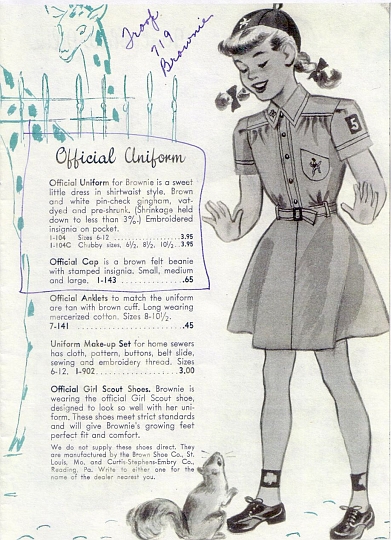 Troop
719
Brownie
Official Uniform
Official Uniform for Brownie is a sweet
little dress in shirtwaist style. Brown
and white pin-check gingham, vat-
dyed and pre-shrunk. (Shrinkage held
down to less than 3%.) Embroidered
insignia on pocket.
1-104 Sizes 6-12 .................. 3.95
1-104C Chubby sizes, 6½, 8½, 10½.. 3.95
Official Cap is a brown felt beanie
with stamped insignia. Small, medium
and large. 1-143 .................. .65
Official Anklets to match the uniform
are tan with brown cuff. Long wearing
mercerized cotton. Sizes 8-10½.
7-141 ............................ .45
Uniform Make-up Set for home sewers
has cloth, pattern, buttons, belt slide,
sewing and embroidery thread. Sizes
6-12. 1-902 .................. 3.00
Official Girl Scout Shoes. Brownie is
wearing the official Girl Scout shoe,
designed to look so well with her uni-
form. These shoes meet strict standards
and will give Brownie's growing feet
perfect fit and comfort.
We do not supply these shoes direct. They
are manufactured by the Brown Shoe Co., St.
Louis, Mo. and Curtis-Stephens-Embry Co.,
Reading, Pa. Write to either one for the
name of the dealer nearest you.
5